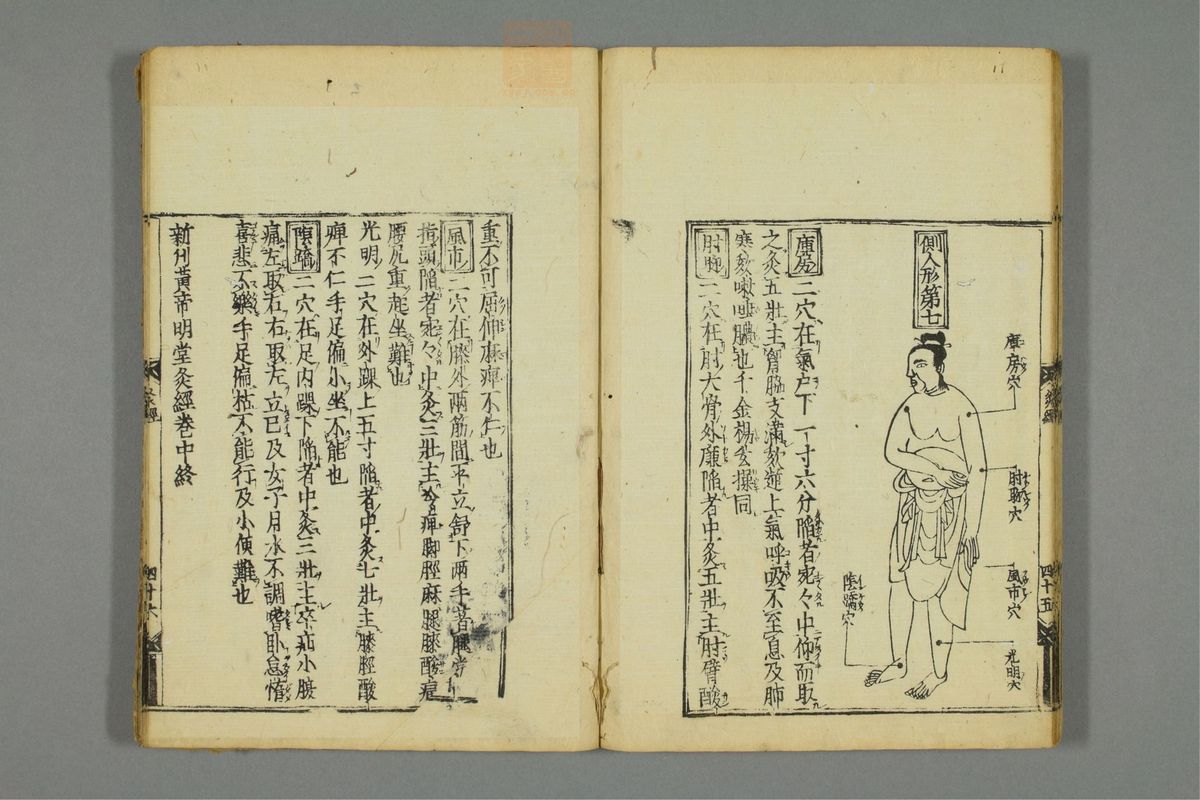 側人形第七
庫房穴
肘聊穴
風市穴
光明穴
陰蹻穴
庫房
二穴在氣戸下一寸六分陷者宛々中仰而取
之灸五壯主胷脇支滿欬逆上氣呼吸不至息及肺
寒欬嗽唾膿也千金楊玄操同
肘聊
二穴在肘大骨外廉陷者中灸五壯主肘臂酸
灸經
四十五
重不可屈伸麻痺不仁也
風市
二穴在膝外兩筋間平立舒下兩手著腿當
指頭陷者宛々中灸三壯主冷痺脚脛麻腿膝酸痛
腰尻重起坐難也
光明二穴在外踝上五寸陷者中灸七壯主膝脛酸
痺不仁手足偏小坐不能也
陰蹻
二穴在足内踝下陷者中灸三壯主卒疝小腹
痛左取右右取左立已及女子月水不調嗜卧怠惰
喜悲不樂手足偏枯不能行及小便難也
新刊黃帝明堂灸經卷中終
灸經
四十六